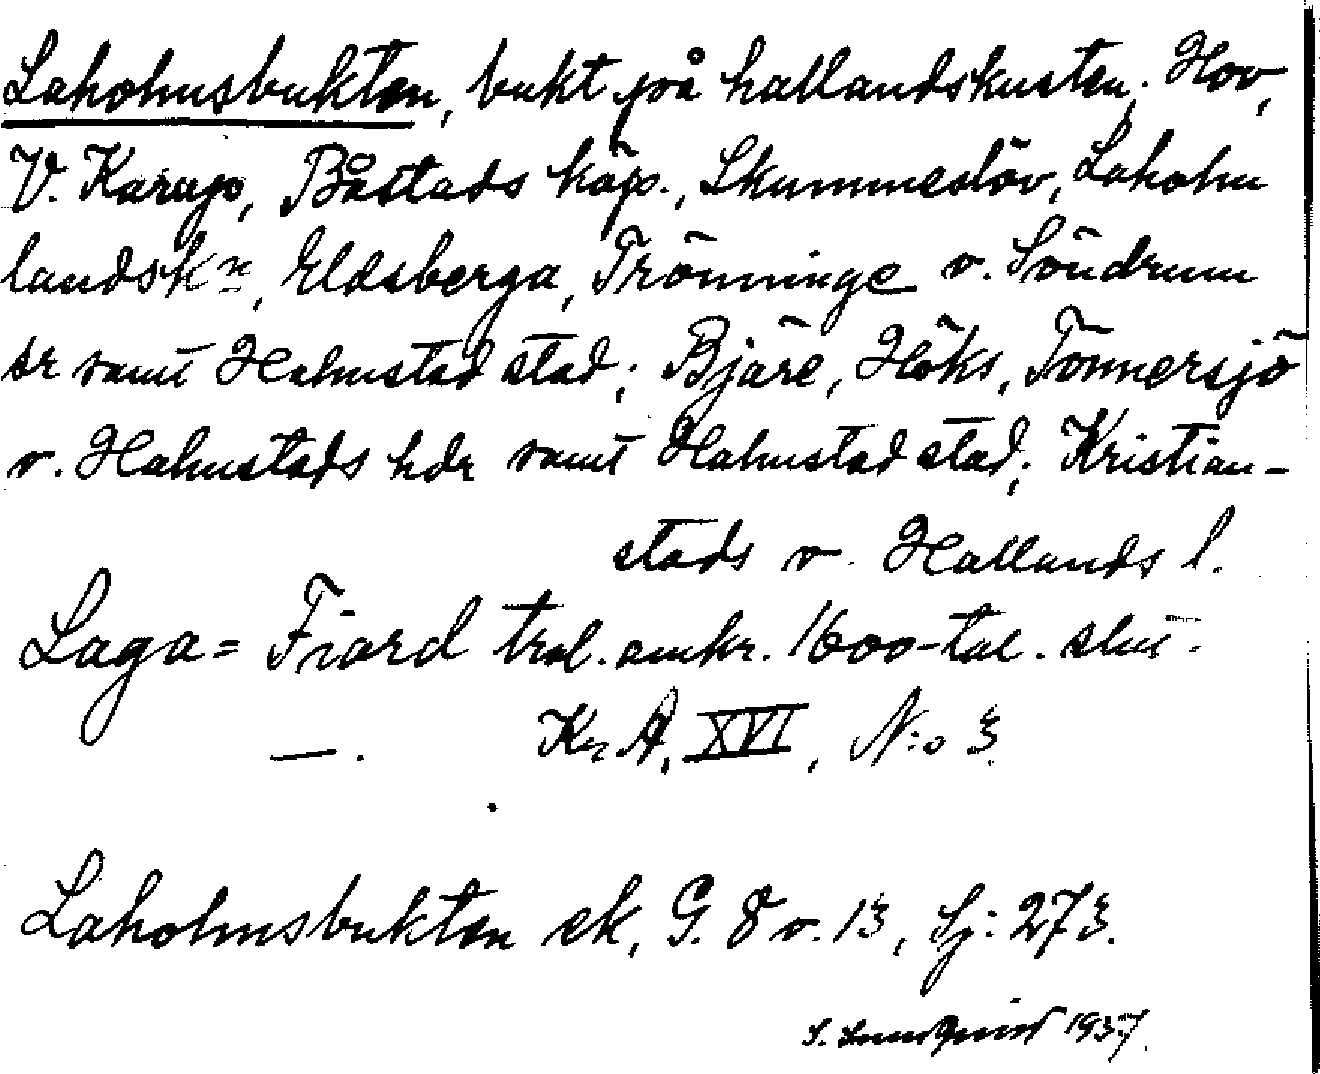 Laholmsbukten, bukt på hallandskusten; Hov,
V. Karup, Båstads köp., Skummeslöv, Laholm
landskn, Eldsberga, Trönninge o. Söndrum
sr samt Halmstad stad; Bjäre, Höks, Tönnersjö
o. Halmstads hdr samt Halmstad stad; Kristian-
stads o. Hallands l.
Laga = Fiord trol. omkr. 1600-tal. slut.
—. Kr. A. XVI, N:o 3.
Laholmsbukten ek, G. 8 o. 13, Sj: 273.
S. Lundquist 1937.